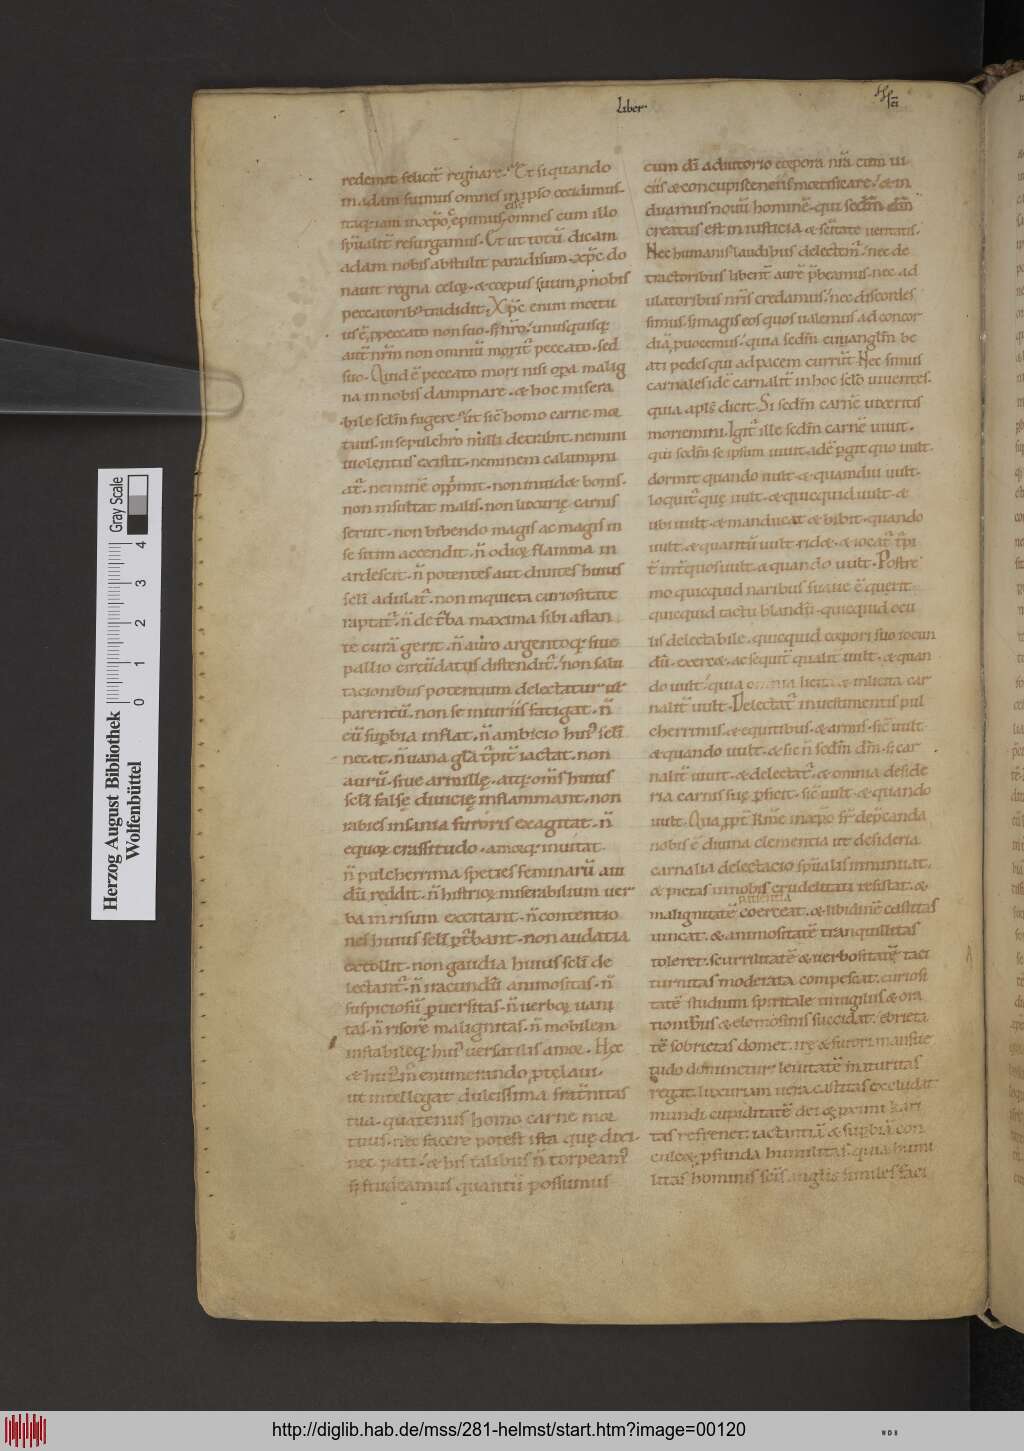 Liber
sci
redemit felicit̄ regnare. Et si quando
in adam fuimus omnes in ipso cecidimus.
itaq; iam in xp̄o cepimus omnes cum illo
sp̄ualit̄ resurgamus. Et ut totū dicam
adam nobis abstulit paradisum. xp̄c do
nauit regna celoꝝ. & corpus suum p̄ nobis
peccatorib; tradidit. Xp̄c enim mortu
us ē, p̄ peccato non suo. sꝫ nr̄o. unusquisq;
aut̄ nr̄m non omniū morit̄ peccato. sed
suo. Quid ē peccato mori nisi opa malig
na in nobis dampnare. & hoc misera
bile sclm̄ fugere. ut sic homo carne mor
tuus. in sepulchro nulli detrahit. nemini
uiolentus existit. neminem calumpni
at̄. neminē opp̄mit. non inuidet bonis.
non insultat malis. non luxurię carnis
seruit. non bibendo magis ac magis in
se sitim accendit. n̄ odioꝝ flamma in
ardescit. n̄ potentes aut diuites huius
scl̄i adulat̄. non inquieta curiositate
raptat̄. n̄ de t̄ba maxima sibi astan
te curā gerit. n̄ auro argentoq; siue
pallio circūdatus distendit̄. non salu
tacionibus potentium delectatur ul̄
parentū. non se iniuriis fatigat. n̄
eū sup̄bia inflat. n̄ ambicio hui; scl̄i
necat. n̄ uana gl̄a t̄pit̄ iactat. non
aurū. siue armillę. atq; om̄s huius
scl̄i falsę diuicię inflammant. non
rabies insania furoris exagitat. n̄
equoꝝ crassitudo. amorq; inuitat.
n̄ pulcherrima species feminarū aui
dū reddit. n̄ histrioꝝ miserabilium uer
ba in risum excitant. n̄ contentio
nes huius scl̄i p̄t̄bant. non audatia
extollit. non gaudia huius scl̄i de
lectant̄. n̄ iracundū animositas. n̄
suspiciosū puersitas. n̄ uerboꝝ uani
tas. n̄ risorē malignitas. n̄ mobilem
instabileq; hui; uersatilis amor. Hęc
& hui; enumerando p̄telaui.
ut intellegat dulcissima frat̄nitas
tua. quatenus homo carne mor
tuus. nec facere potest ista quę dixi.
nec pati. & his talibus n̄ torpeam;
sꝫ studeamus quantū possumus
cum dī adiutorio corpora nr̄a cum ui
ciis & concupiscenciis mortificare. & in
duamus nouū hominē. qui sedm̄ dm̄
creatus est in iusticia & sc̄itate ueritatis.
Nec humanis laudibus delectem̄. nec de
tractoribus libent̄ aurē p̄beamus. nec ad
ulatoribus nr̄is credamus. nec discordes
simus. sꝫ magis eos quos ualemus ad concor
diā p̄uocemus. quia sedm̄ euuanglm̄ be
ati pedes qui ad pacem currūt. Nec simus
carnales idē carnalit̄ in hoc sclo uiuentes.
quia apl̄s dicit. Si sedm̄ carnē uixeritis
moriemini. Igit̄ ille sedm̄ carnē uiuit.
qui sedm̄ se ipsum uiuit. adē p̄git quo uult.
dormit quando uult. & quamdiu uult.
loquit̄ quę uult. & quicquid uult. &
ubi uult. & manducat & bibit. quando
uult. & quantū uult. ridet. & iocat̄ t̄pi
t̄ int̄ quos uult. & quando uult. Postre
mo quicquid naribus suaue ē querit.
quicquid tactu blandū. quicquid ocu
lis delectabile. quicquid corpori suo iocun
dū. exercet. ac sequit̄ qualit̄ uult. & quan
do uult. quia omnia licita & inlicita car
nalit̄ uult. Delectat̄ in uestimentis pul
cherrimis. & equitibus. & armis. sic uult.
& quando uult. & sic n̄ sedm̄ dm̄. sꝫ car
nalit̄ uiuit. & delectat̄. & omnia deside
ria carnis suę p̄ficit. sic uult. & quando
uult. Qua p̄pt̄ kmē in xp̄o fr̄ dep̄canda
nobis ē diuina clementia ut desideria
carnalia delectacio sp̄ualis inminuat.
& pietas in nobis crudelitati resistat. &
patientia
malignitatē coerceat. & libidinē castitas
uincat. & animositatē tranquillitas
toleret. scurrilitatē & uerbositatē taci
turnitas moderata compescat. curiosi
tatē studium spiritale in uigiliis & ora
tionibus & elemosinis succidat. ebrieta
tē sobrietas domet. irę & furori mansue
tudo dominetur. leuitatē maturitas
regat. luxuriam uera castitas excludat
mundi cupiditatē dei & p̄ximi kari
tas refrenet. iactantiā & sup̄biā con
culcet. p̄funda humilitas. quia humi
litas homines sc̄is anglis similes faci
Herzog August Bibliothek
Wolfenbüttel
0 1 2 3 4
Gray Scale
http://diglib.hab.de/mss/281-helmst/start.htm?image=00120